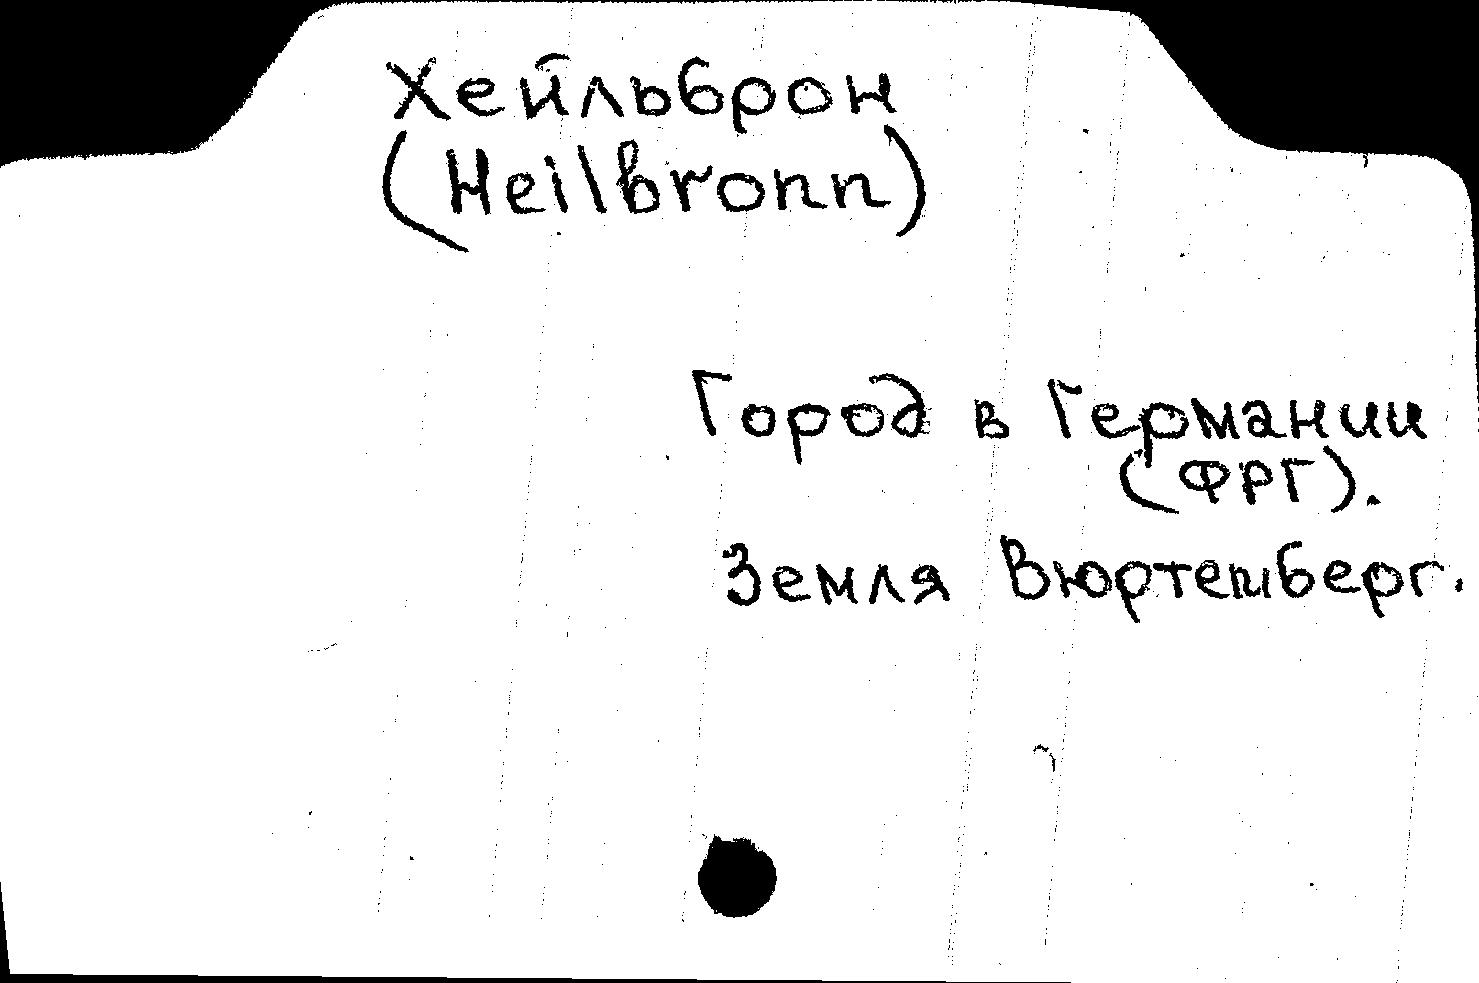 Хейльброн
(Heilbronn)
Город в Германии
(ФРГ).
Земля Вюртемберг.